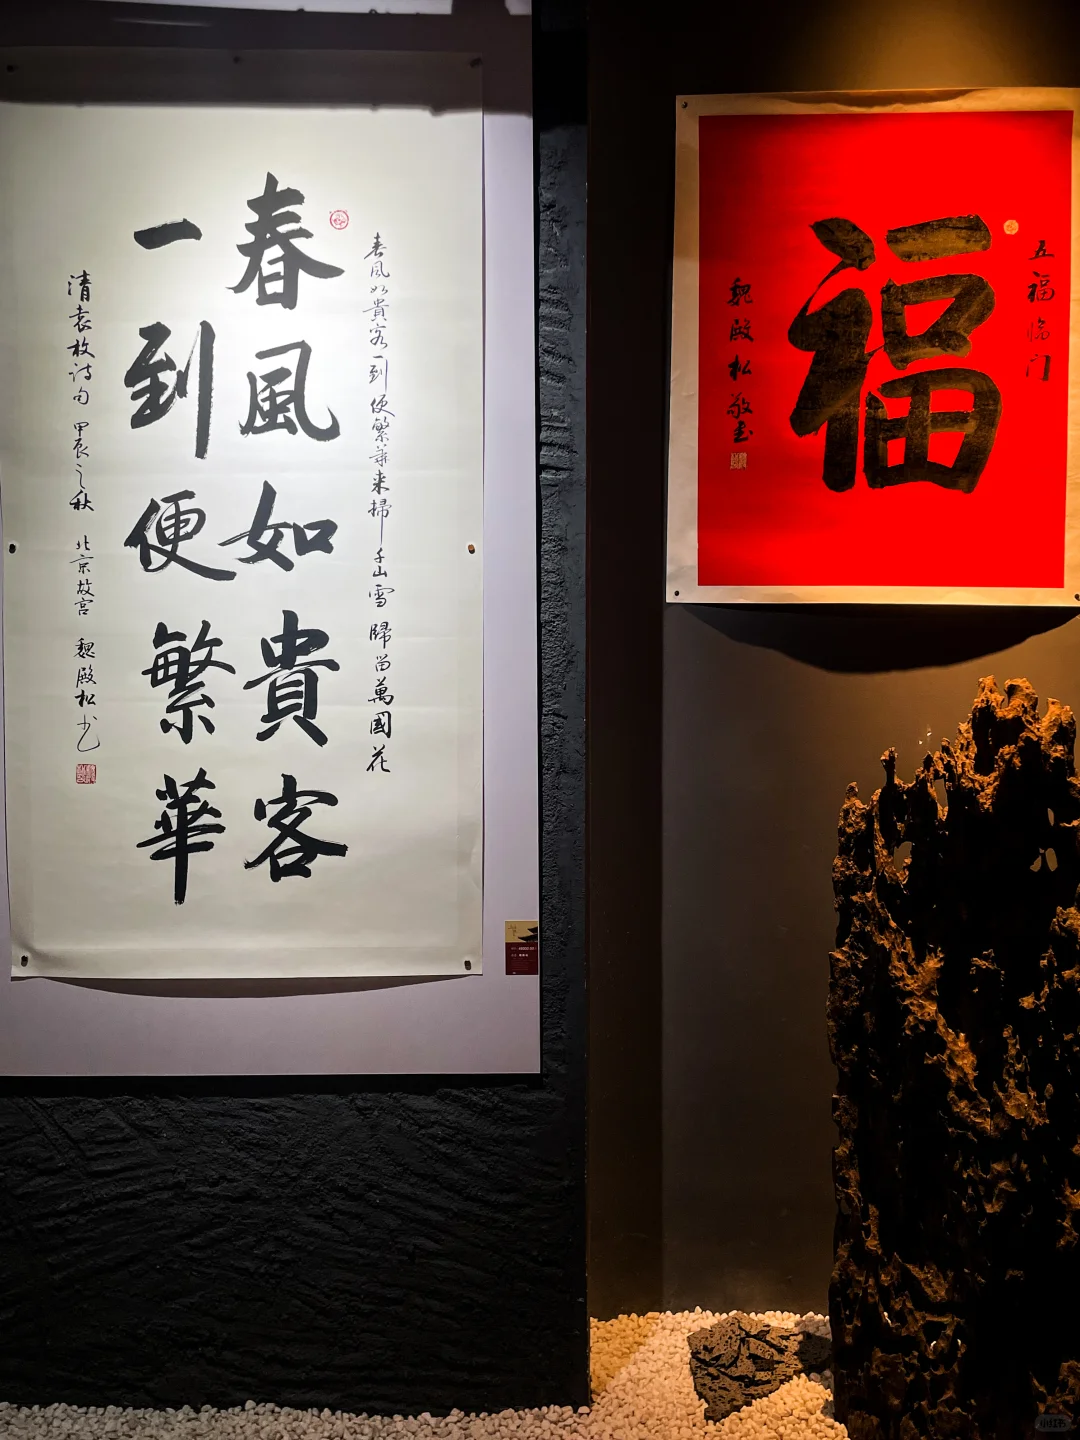 春風如貴客一到便繁華来掃千山雪歸留萬國花
春風如貴客
一到便繁華
清袁枚诗句 甲辰之秋 北京故宫 魏殿松书
五福临门
福
魏殿松敬书